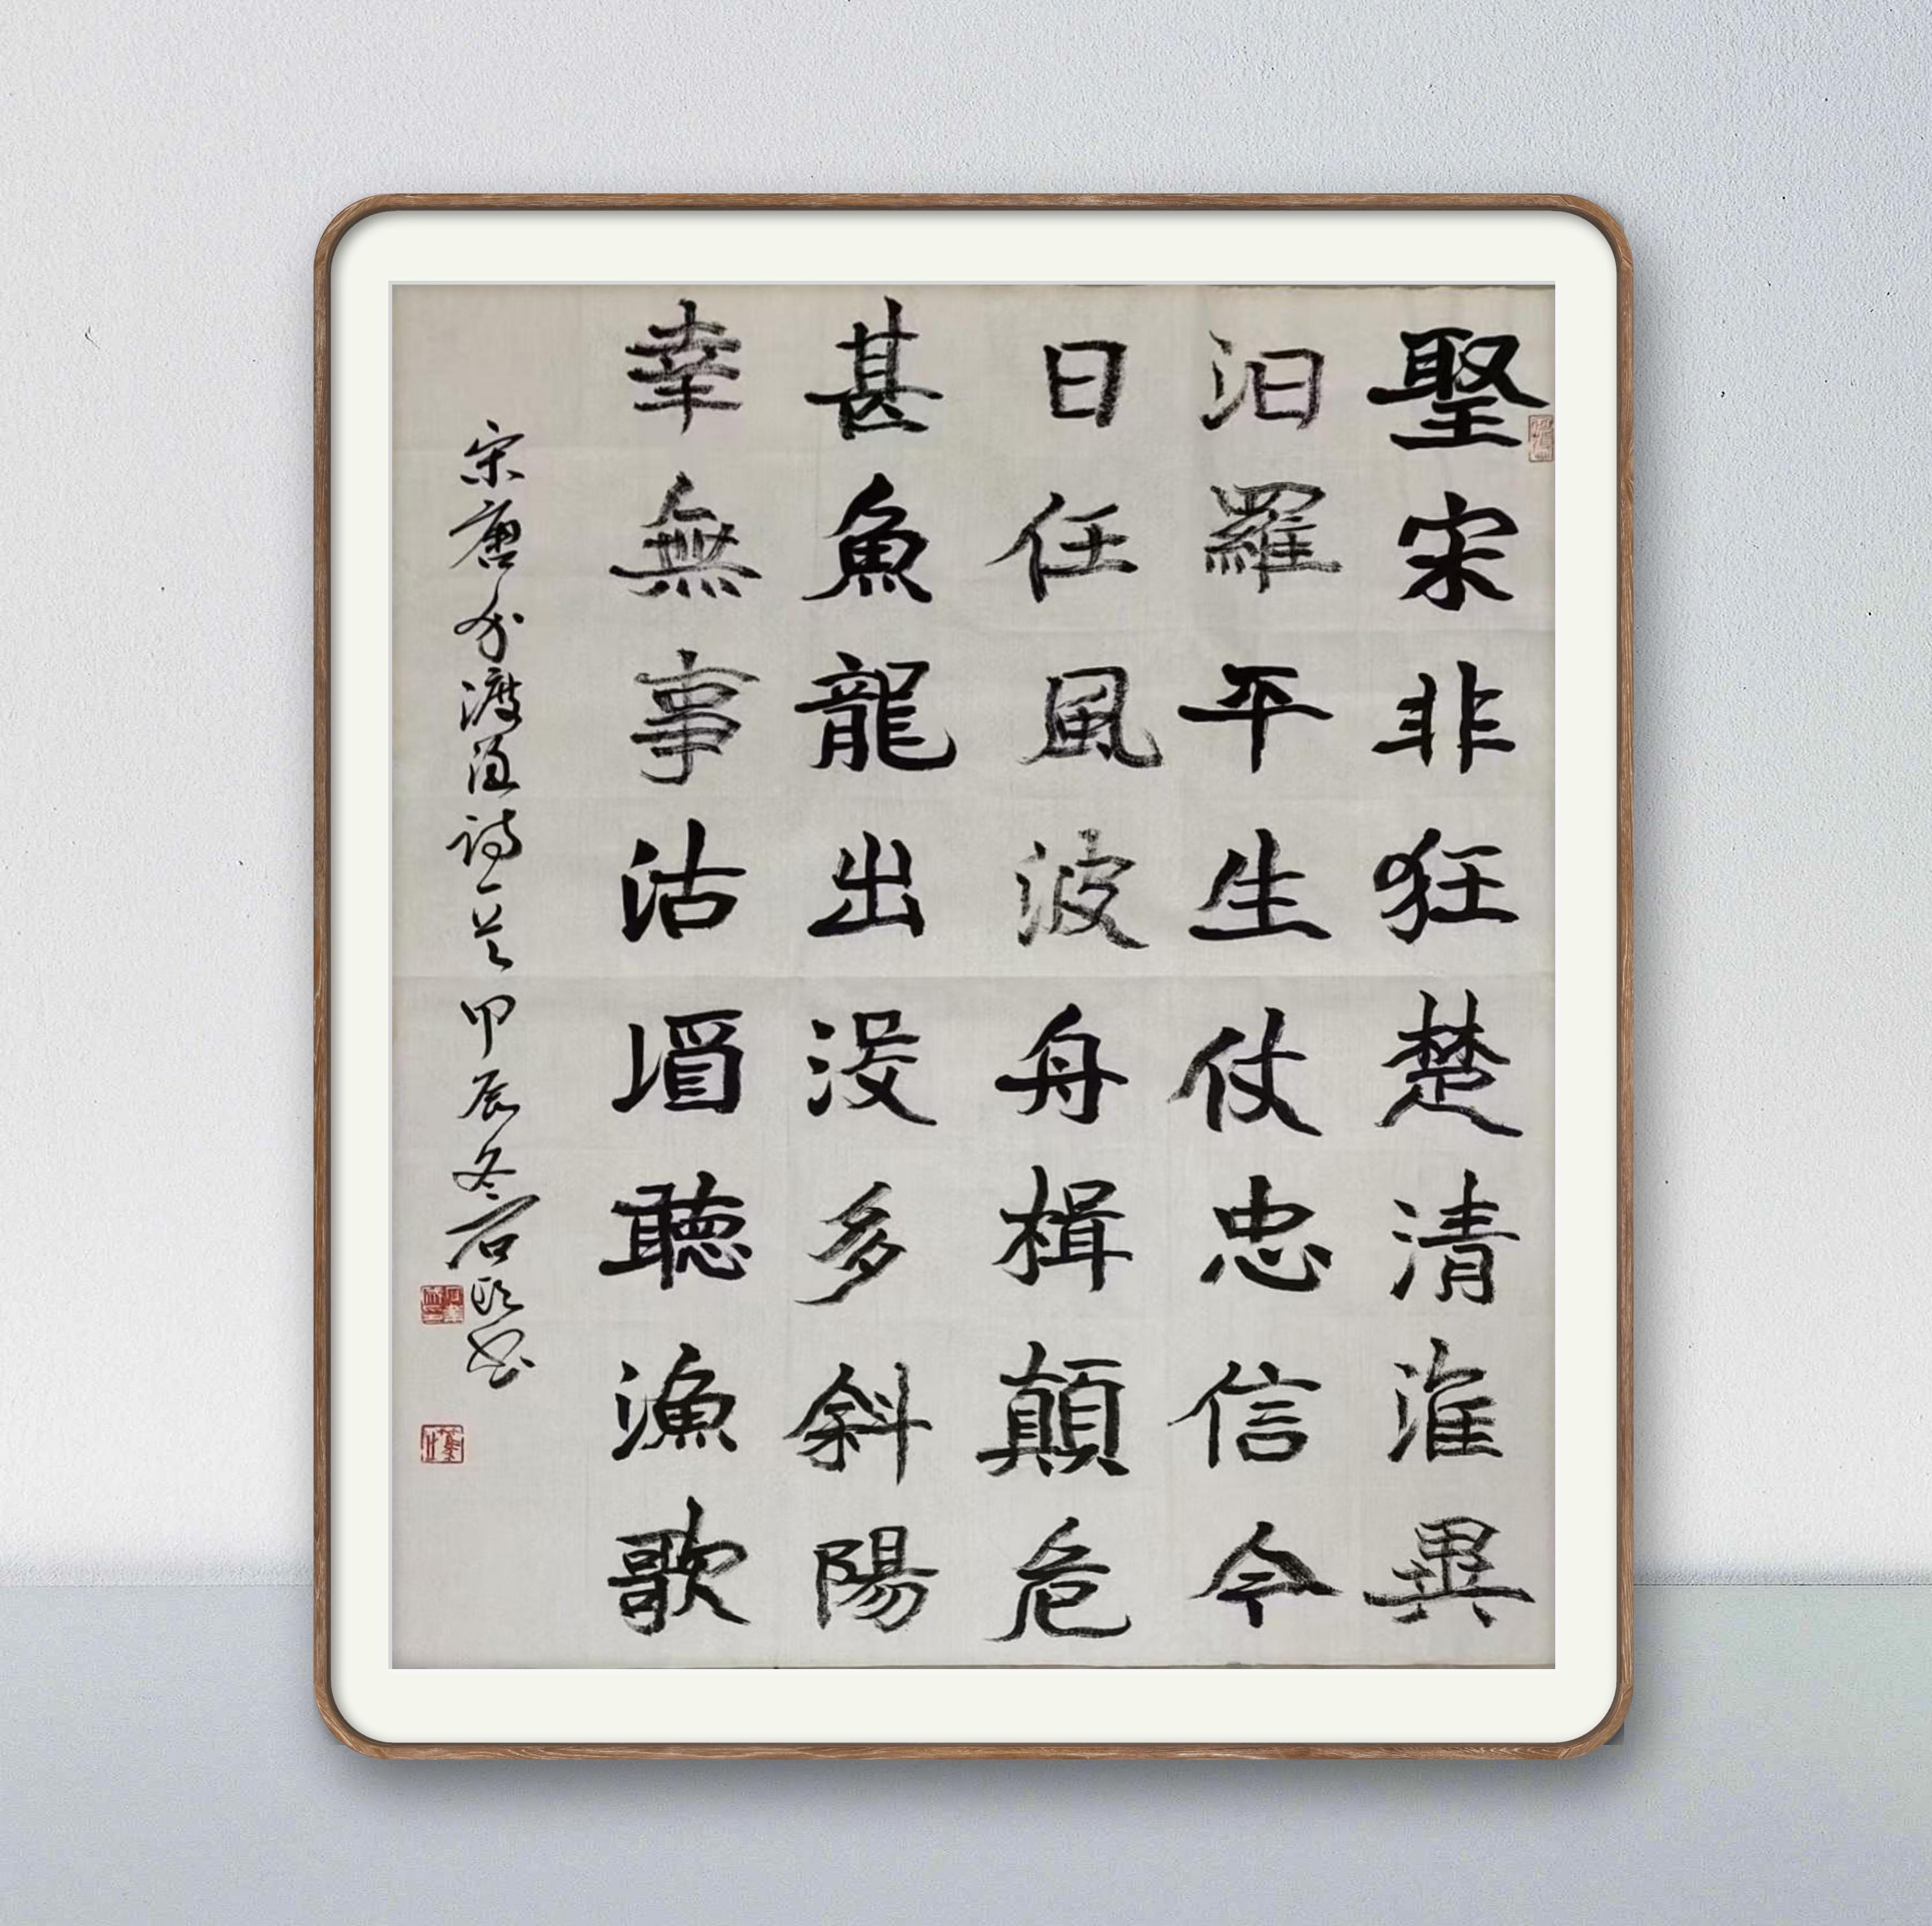 聖宋非狂楚清淮異
汨羅平生仗忠信今
日任風波舟楫顛危
甚魚龍出没多斜陽
幸無事沽酒聽漁歌
宋唐介渡淮詩一首甲辰冬石書